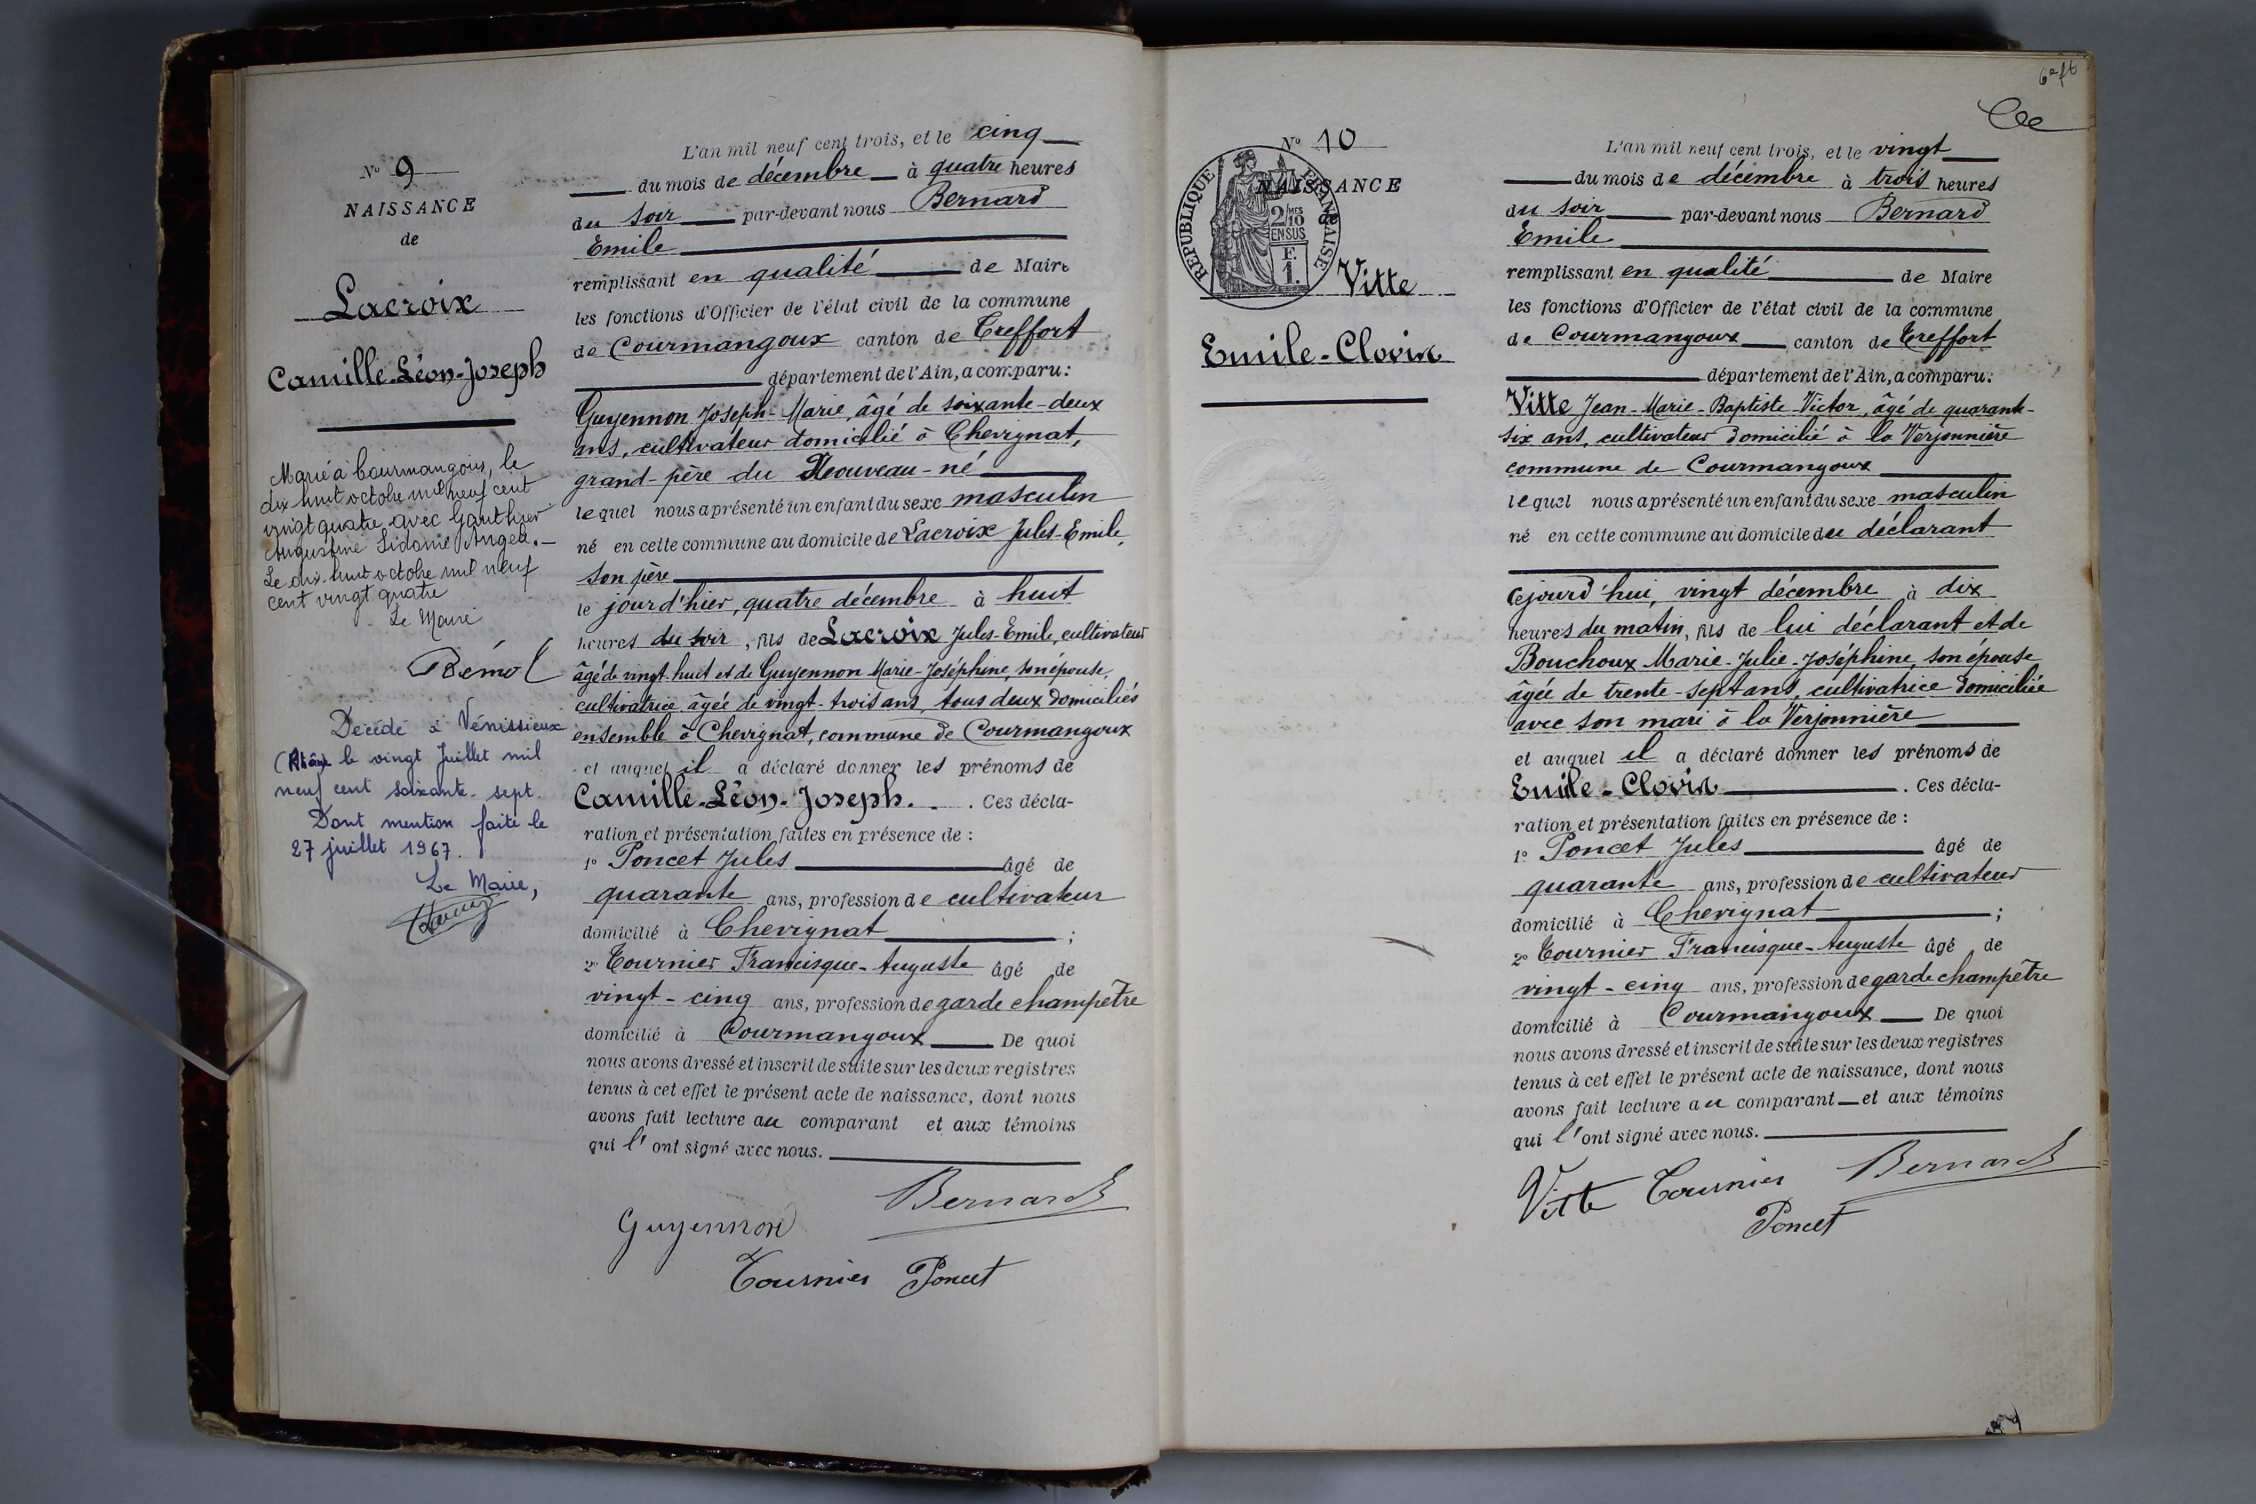 Nº 9
NAISSANCE
de
Lacroix
Camille-Léon-Joseph
Marié à Courmangoux, le
dix huit octobre mil neuf cent
vingt quatre avec Gauthier
Augustine Sidonie Angèle.
Le dix-huit octobre mil neuf
cent vingt quatre
Le Maire
Décédé à Vénissieux
(Rhône) le vingt Juillet mil
neuf cent soixante-sept.
Dont mention faite le
27 juillet 1967.
Le Maire,
L'an mil neuf cent trois, et le cinq
du mois de décembre à quatre heures
du soir par-devant nous Bernard
Emile
remplissant en qualité de Maire
les fonctions d'Officier de l'état civil de la commune
de Courmangoux canton de Treffort
département de l'Ain, a comparu:
Guyennon Joseph-Marie, âgé de soixante-deux
ans, cultivateur domicilié à Chevignat,
grand-père du Nouveau-né
lequel nous a présenté un enfant du sexe masculin
né en cette commune au domicile de Lacroix Jules-Emile,
son père
le jour d'hier, quatre décembre à huit
heures du soir, fils de Lacroix Jules-Emile, cultivateur
âgé de vingt-huit et de Guyennon Marie-Joséphine, son épouse,
cultivatrice âgée de vingt-trois ans, tous deux domiciliés
ensemble à Chevignat, commune de Courmangoux
et auquel il a déclaré donner les prénoms de
Camille-Léon-Joseph. . Ces décla-
ration et présentation faites en présence de :
1º Poncet Jules âgé de
quarante ans, profession de cultivateur
domicilié à Chevignat ;
2º Tournier Francisque-Auguste âgé de
vingt-cinq ans, profession de garde champêtre
domicilié à Courmangoux De quoi
nous avons dressé et inscrit de suite sur les deux registres
tenus à cet effet le présent acte de naissance, dont nous
avons fait lecture au comparant et aux témoins
qui l'ont signé avec nous.
Bernard
Guyennon
Tournier Poncet
Nº 10
NAISSANCE
de
RÉPUBLIQUE FRANÇAISE
2/10 MES
EN SUS
F.
1.
Vitte
Emile-Clovis
L'an mil neuf cent trois, et le vingt
du mois de décembre à trois heures
du soir par-devant nous Bernard
Emile
remplissant en qualité de Maire
les fonctions d'Officier de l'état civil de la commune
de Courmangoux canton de Treffort
département de l'Ain, a comparu:
Vitte Jean-Marie-Baptiste-Victor, âgé de quarante-
six ans, cultivateur domicilié à la Verjonnière
commune de Courmangoux
lequel nous a présenté un enfant du sexe masculin
né en cette commune au domicile du déclarant
cejourd'hui, vingt décembre à dix
heures du matin, fils de lui déclarant et de
Bouchoux Marie-Julie-Joséphine, son épouse
âgée de trente-sept ans, cultivatrice domiciliée
avec son mari à la Verjonnière
et auquel il a déclaré donner les prénoms de
Emile-Clovis . Ces décla-
ration et présentation faites en présence de :
1º Poncet Jules âgé de
quarante ans, profession de cultivateur
domicilié à Chevignat ;
2º Tournier Francisque-Auguste âgé de
vingt-cinq ans, profession de garde champêtre
domicilié à Courmangoux De quoi
nous avons dressé et inscrit de suite sur les deux registres
tenus à cet effet le présent acte de naissance, dont nous
avons fait lecture au comparant et aux témoins
qui l'ont signé avec nous.
Vitte Tournier Bernard
Poncet